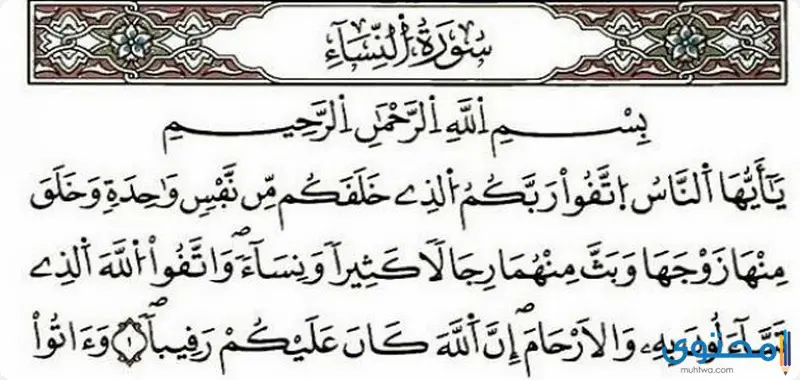 سُورَةُ اُ۬لنِّسَآءِ
بِسْمِ اِ۬للَّهِ اِ۬لرَّحْمَٰنِ اِ۬لرَّحِيمِ
يَٰٓأَيُّهَا اَ۬لنَّاسُ اُ۪تَّقُواْ رَبَّكُمُ اُ۬لذِے خَلَقَكُم مِّن نَّفْسٖ وَٰحِدَةٖ وَخَلَقَ
مِنْهَا زَوْجَهَا وَبَثَّ مِنْهُمَا رِجَالاٗ كَثِيراٗ وَنِسَآءٗۖ وَاتَّقُواْ اُ۬للَّهَ اَ۬لذِے
تَسَّآءَلُونَ بِهِۦ وَالَارْحَامَۖ إِنَّ اَ۬للَّهَ كَانَ عَلَيْكُمْ رَقِيباٗۖ ١ وَءَاتُواْ
محتوى
muhtwa.com